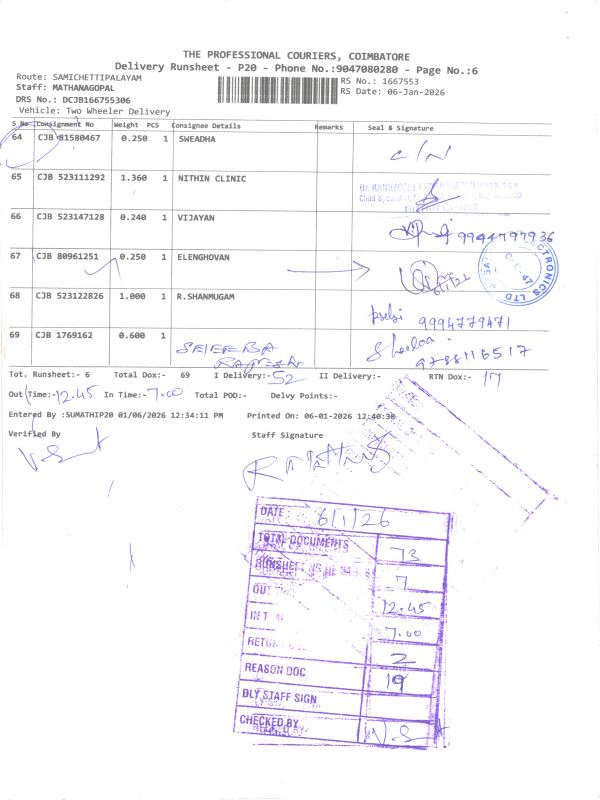 THE PROFESSIONAL COURIERS, COIMBATORE
Delivery Runsheet - P20 - Phone No.:9047080280 - Page No.:6
Route: SAMICHETTIPALAYAM
RS No.: 1667553
Staff: MATHANAGOPAL
RS Date: 06-Jan-2026
DRS No.: DCJB166755306
Vehicle: Two Wheeler Delivery
S No Consignment No Weight PCS Consignee Details Remarks Seal & Signature
64 CJB 81580467 0.250 1 SWEADHA C/N
65 CJB 523111292 1.360 1 NITHIN CLINIC
66 CJB 523147128 0.240 1 VIJAYAN 9944797936
67 CJB 80961251 0.250 1 ELENGHOVAN
68 CJB 523122826 1.000 1 R.SHANMUGAM 9994779471
69 CJB 1769162 0.600 1
Tot. Runsheet:- 6 Total Dox:- 69 I Delivery:- 52 II Delivery:- RTN Dox:- 17
Out Time:- 12.45 In Time:- 7.00 Total POD:- Delvy Points:-
Entered By :SUMATHIP20 01/06/2026 12:34:11 PM Printed On: 06-01-2026 12:40:36
Verified By Staff Signature
DATE 6/1/26
TOTAL DOCUMENTS 73
RUNSHEET 7
OUT 12.45
IN 7.00
2
REASON DOC 19
DLY STAFF SIGN
CHECKED BY